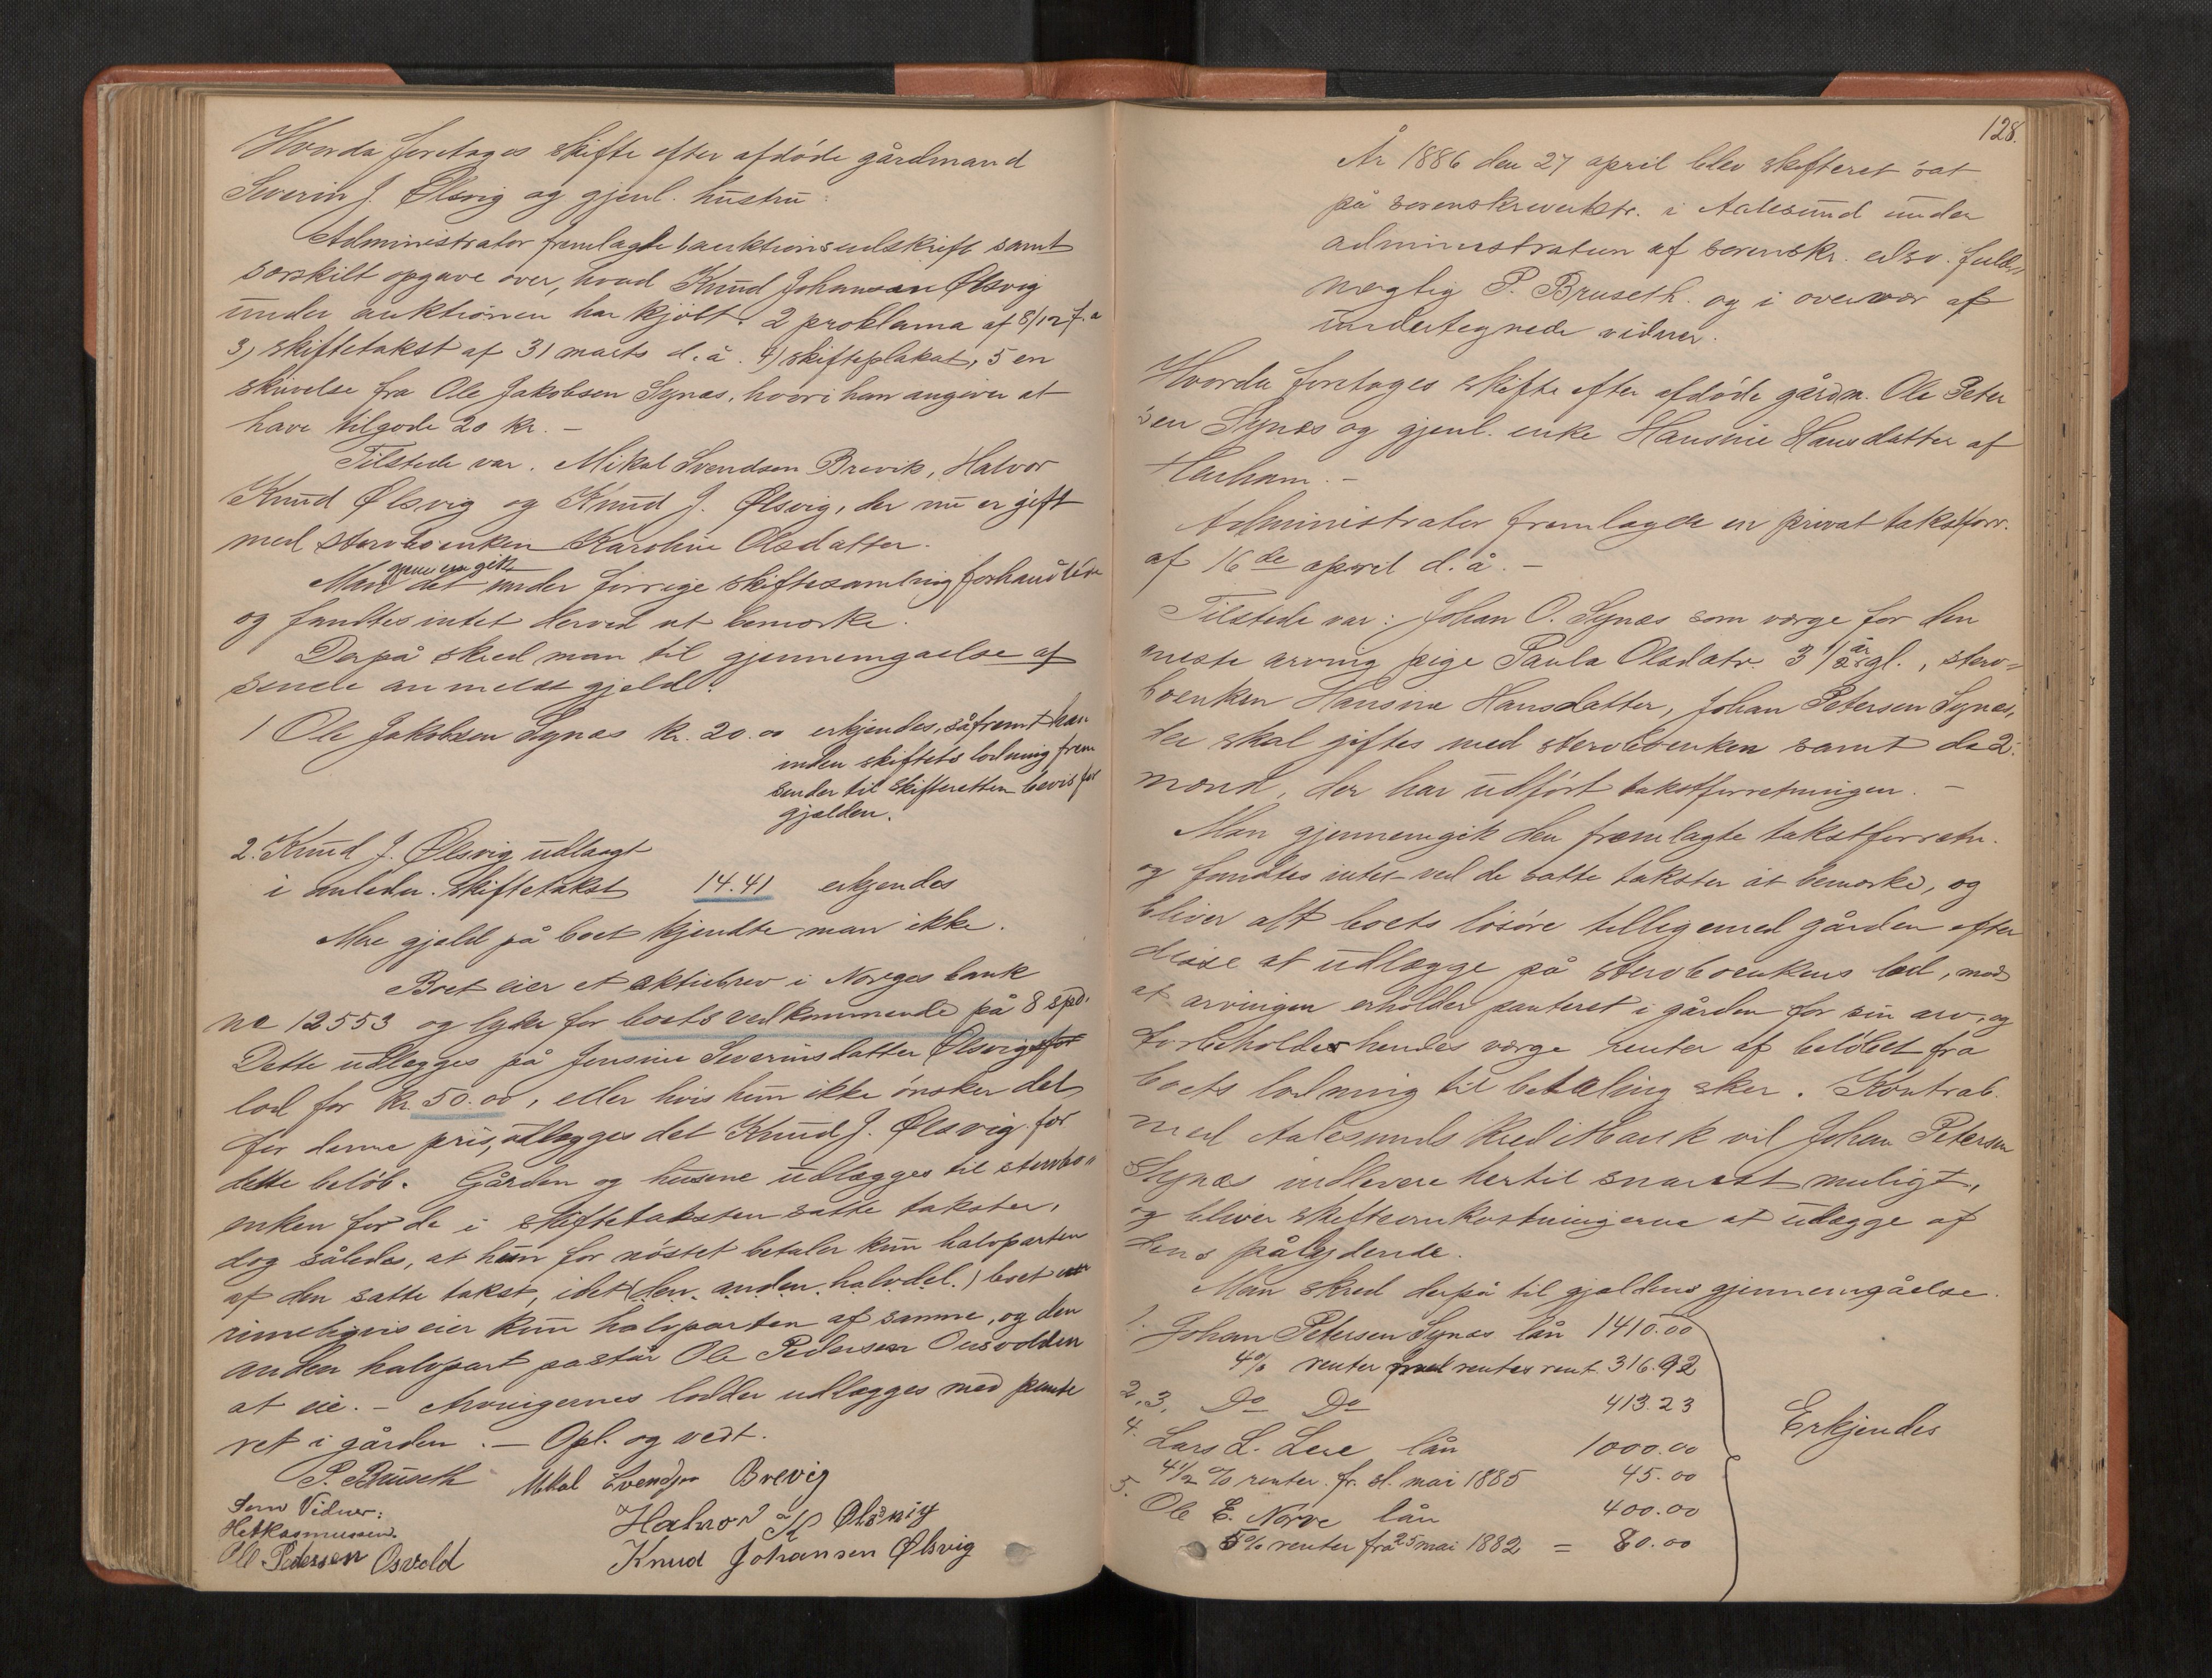 Hvorda foretages skifte efter afdøde gårdmand
Severin J. Ølsvig og gjenl. hustru.
Administrator fremlagde 1 auktionsudskrift samt
særskilt opgave over, hvad Knud Johansen Ølsvig
under auktionen har kjøbt. 2 proklama af 8/12 f. a
3) skiftetakst af 31 marts d. å. 4) skifteplakat, 5 en
skrivelse fra Ole Jakobsen Synæs, hvori han angiver at
have tilgode 20 kr. –
Tilstede var. Mikal Svendsen Brevik, Halvor
Knud Ølsvig og Knud J. Ølsvig, der nu er gift
med stervboenken Karoline Olsdatter.
Man gjennemgik det under forrige skiftesamling forhandlede
og fandtes intet derved at bemærke.
Derpå skred man til gjennemgaaelse af
senere anmeldt gjæld:
1 Ole Jakobsen Synæs kr. 20.00 erkjendes, såfremt han
inden skiftets lodning frem
sender til skifteretten bevis for
gjælden.
2. Knud J. Ølsvig udlagt
i anledn. skiftetakst 14.41 erkjendes
Mere gjæld på boet kjendte man ikke.
Boet eier et aktiebrev i Norges bank
no 12553 og lyder for boets vedkommende på 8 spd.
Dette udlægges på Jensine Severinsdatter Ølsvigs for
lod for kr. 50.00, eller hvis hun ikke ønsker det
for denne pris, udlægges det Knud J. Ølsvig for
dette beløb. Gården og husene udlægges til stervbo„
enken for de i skiftetaksten satte takster,
dog således, at hun for nøstet betaler kun halvparten
af den satte takst, idet (den anden halvdel.) boet
rimeligvis eier kun halvparten af samme, og den
anden halvpart påstår Ole Pedersen Ousvolden
at eie. – Arvingernes lodder udlægges med pante
ret i gården. – Opl. og vedt.
P. Bruseth Mikal Svendsen Brevig
Som Vidner: Halvor K Ølsvig
H Rasmussen. Knud Johansen Ølsvig
Ole Pedersen Osvold
128.
År 1886 den 27 april blev skifteret sat
på sorenskriverktr. i Aalesund under
administration af sorenskr. edsv. fuld„
mægtig P. Bruseth. og i overvær af
undertegnede vidner.
Hvorda foretages skifte efter afdøde gårdm. Ole Peter
sen Synæs og gjenl. enke Hansine Hansdatter af
Harham. –
Administrator fremlagde en privat takstforr.
af 16de april d. å. –
Tilstede var: Johan O. Synæs som værge for den
eneste arving pige Paula Olsdatr. 3 1/2 år gl., sterv„
boenken Hansine Hansdatter, Johan Petersen Synæs,
der skal giftes med stervboenken samt de 2
mænd, der har udført takstforretningen. –
Man gjennemgik den fremlagte takstforretn.
og fandtes intet ved de satte takster at bemærke, og
bliver alt boets løsøre tilligemed gården efter
disse at udlægge på stervboenkens lod, mod
at arvingen erholder panteret i gården for sin arv, og
forbeholder hendes værge renter af beløbet fra
boets lodning til betaling sker. Kontrab.
med Aalesunds Kreditbank vil Johan Petersen
Synæs indlevere hertil snarest muligt,
og bliver skifteomkostningerne at udlægge af
dens pålydende.
Man skred derpå til gjældens gjennemgåelse.
1. Johan Petersen Synæs lån 1410.00
4% renter med rentes rent. 316.92
2, 3, Do Do 413.23
Erkjendes
4. Lars L. Leie lån 1000.00
4 1/2 % renter. fr. sl. mai 1885 45.00
5. Ole E. Nørve lån 400.00
5% renter fra 25 mai 1882 = 80.00